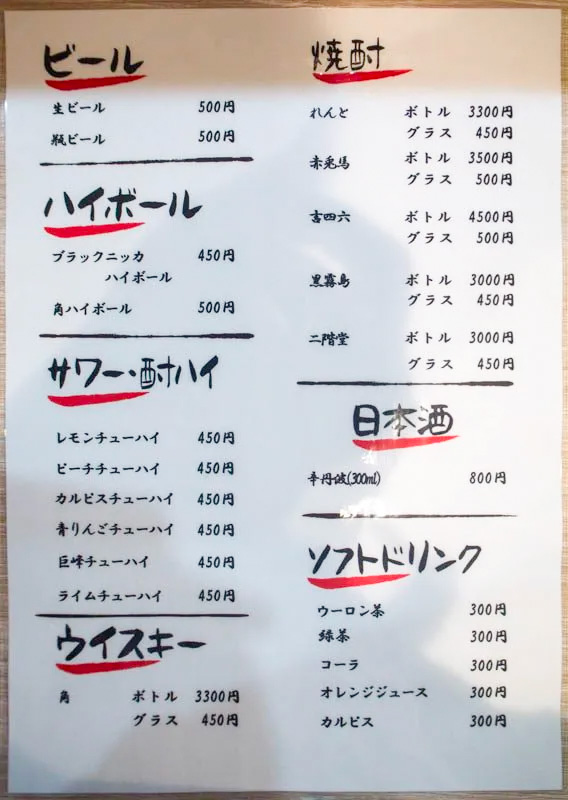 ビール
生ビール 500円
瓶ビール 500円
ハイボール
ブラックニッカ 450円
ハイボール
角ハイボール 500円
サワー・酎ハイ
レモンチューハイ 450円
ピーチチューハイ 450円
カルピスチューハイ 450円
青りんごチューハイ 450円
巨峰チューハイ 450円
ライムチューハイ 450円
ウイスキー
角 ボトル 3300円
グラス 450円
焼酎
れんと ボトル 3300円
グラス 450円
赤兎馬 ボトル 3500円
グラス 500円
吉四六 ボトル 4500円
グラス 500円
黒霧島 ボトル 3000円
グラス 450円
二階堂 ボトル 3000円
グラス 450円
日本酒
辛丹波(300ml) 800円
ソフトドリンク
ウーロン茶 300円
緑茶 300円
コーラ 300円
オレンジジュース 300円
カルピス 300円